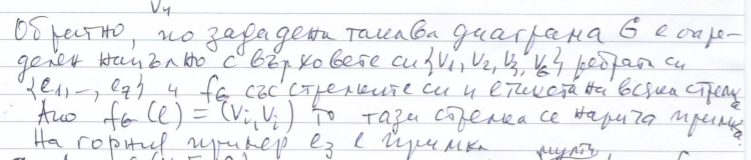 V4
Обратно, по зададена такава диаграма G е опре-
делен напълно с върховете си {V1, V2, V3, V6} ребрата си
{e1, -, e7} и fG със стрелките си и етикета на всяка стрелка
Ако fG (e) = (Vi, Vi) то тази стрелка се нарича примка.
На горния пример e3 е примка
мулти